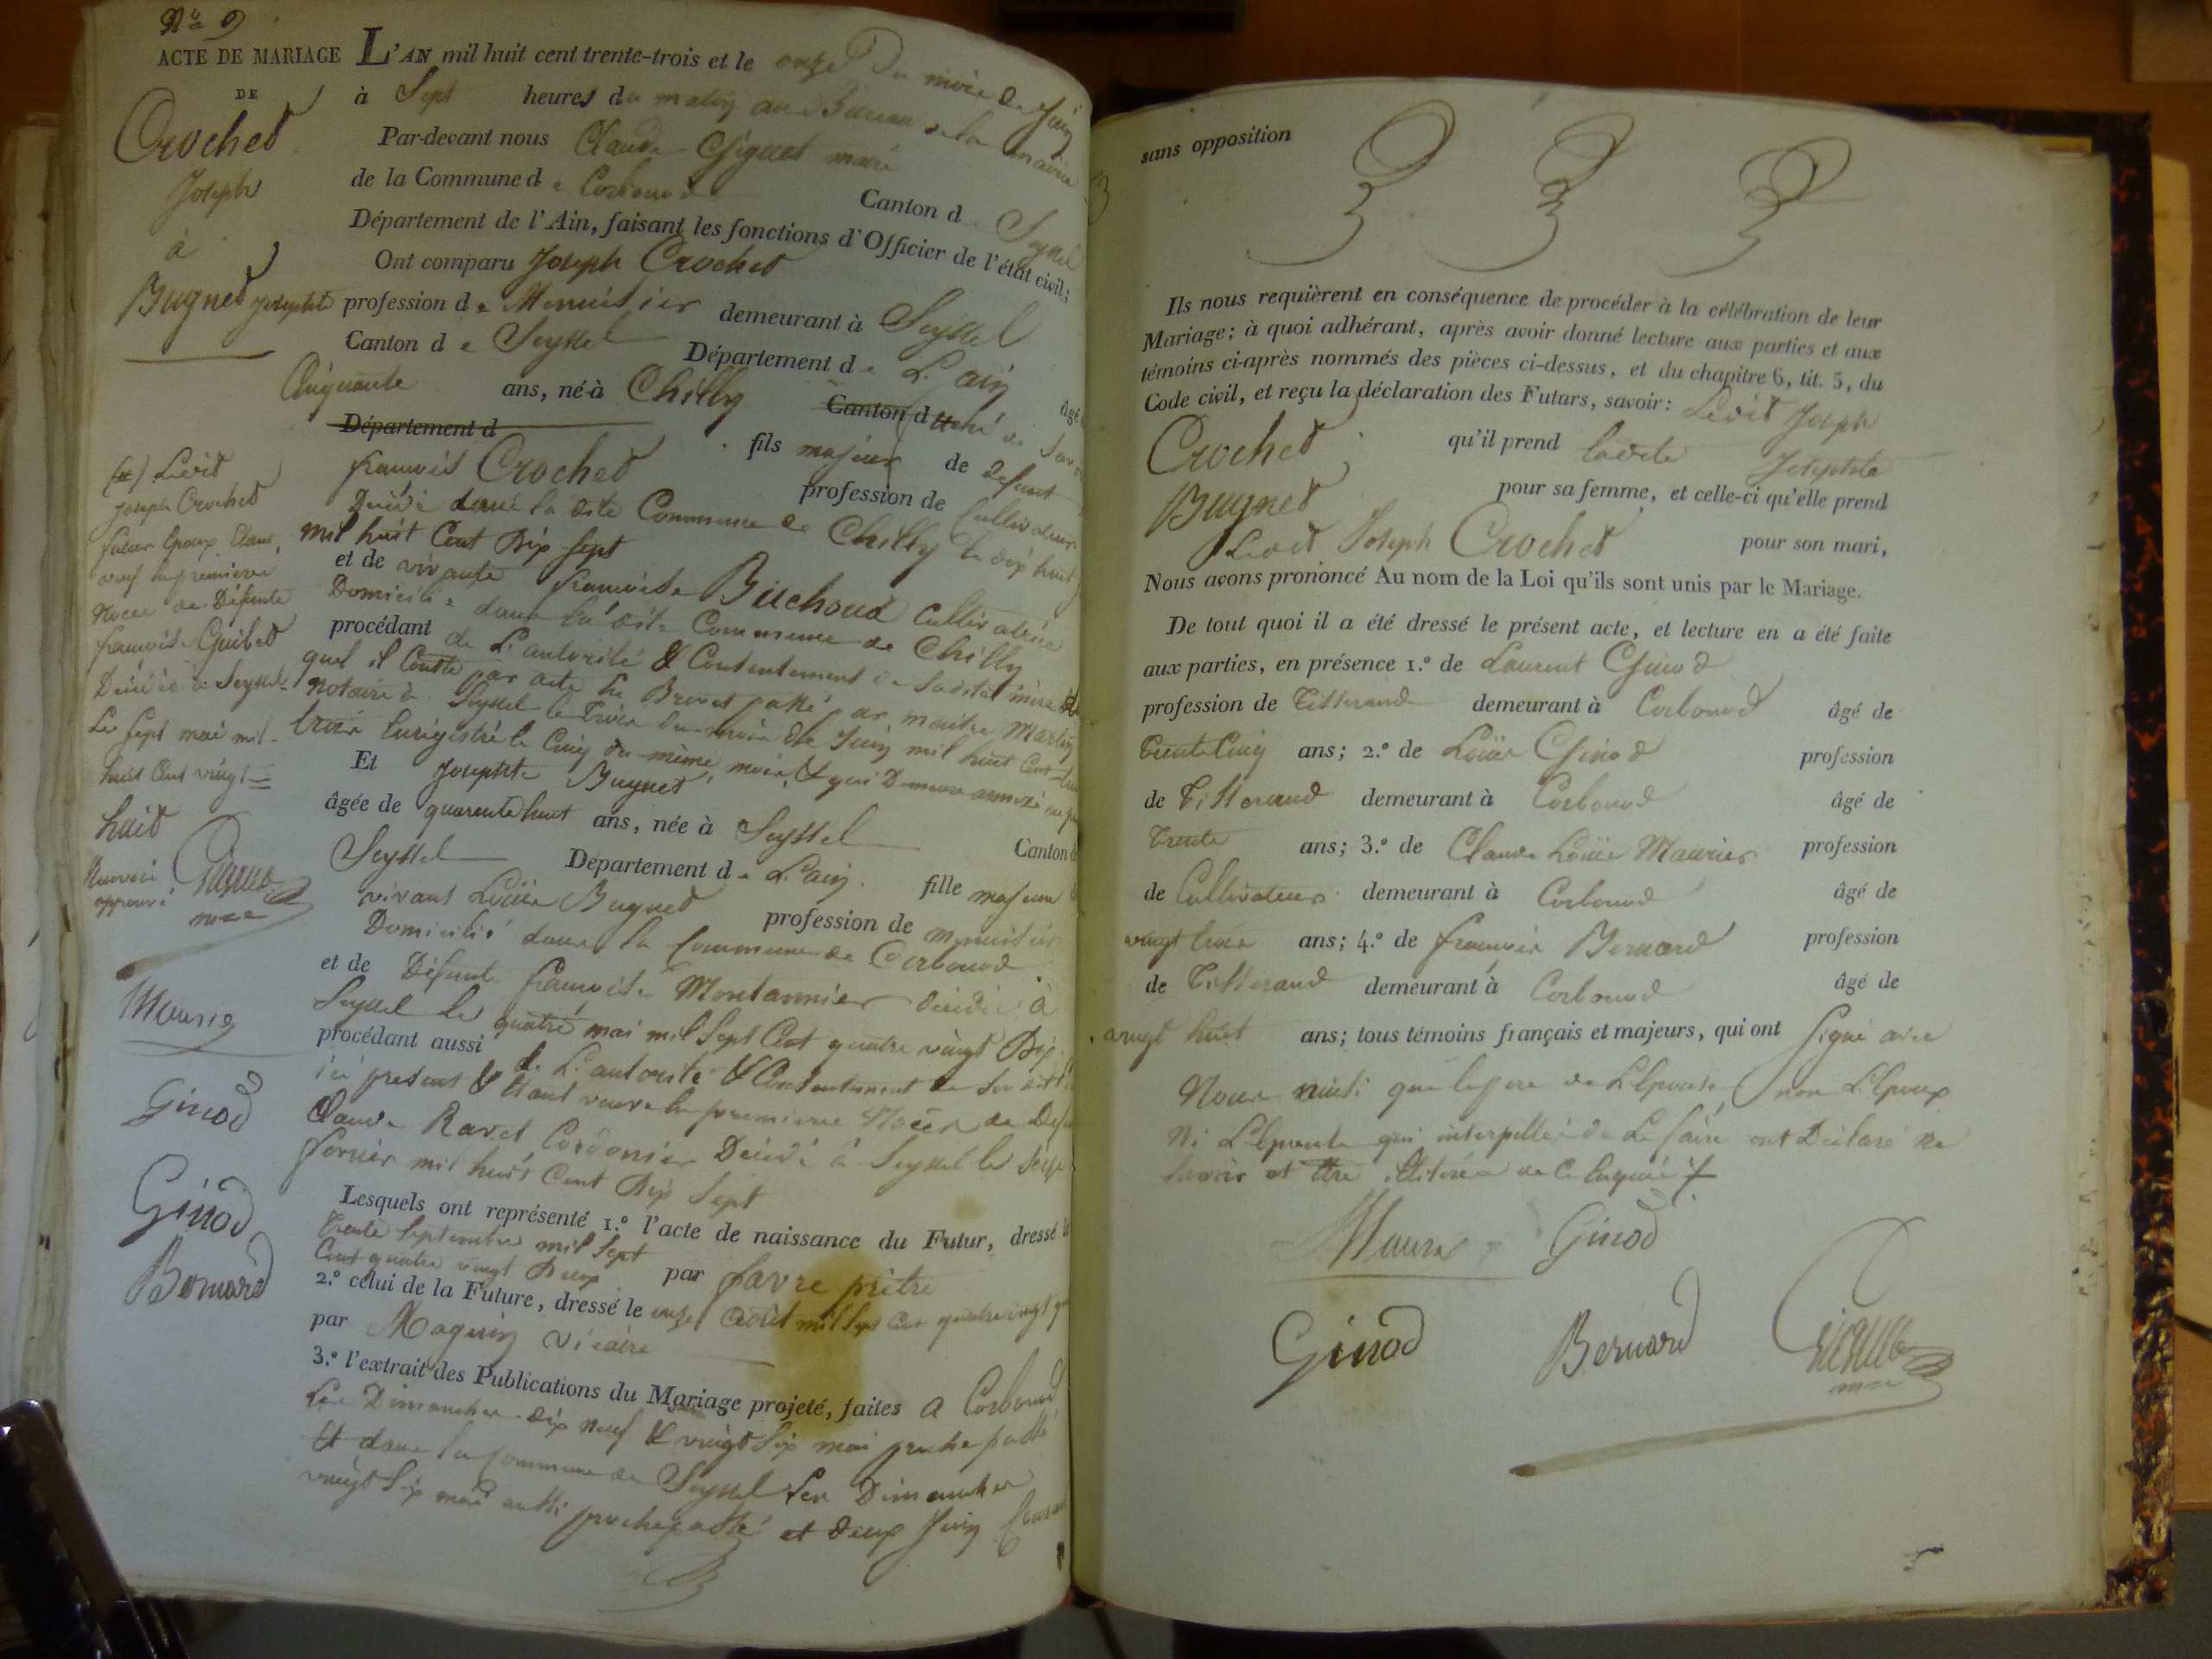 N.º 9
ACTE DE MARIAGE
DE
Crochet
Joseph
à
Bugnet Josephte
L'AN mil huit cent trente-trois et le onze du mois de Juin
à Sept heures du matin au Bureau de la mairie
Par-devant nous Claude maire
de la Commune de Corbonod Canton de Seyssel
Département de l'Ain, faisant les fonctions d'Officier de l'état civil;
Ont comparu Joseph Crochet
profession de Menuisier demeurant à Seyssel
Canton de Seyssel Département de L'ain âgé
Cinquante ans, né à Chilly Canton d
Département d fils majeur de defunt
françois Crochet profession de Cultivateur
Décédé dans la dite Commune de Chilly le dix huit
mil huit Cent Dix Sept
et de vivante françoise Buchoud Cultivatrice
Domiciliée dans la dite Commune de Chilly
procédant de L'autorité & Consentement de Sadite mère
quel il Conste par acte en Brevet passé par maitre Martin
notaire à Seyssel le trois du mois de Juin mil huit Cent
trois Enregistré le Cinq du même mois, & qui Demeure annexé
Et Josephte Bugnet
âgée de quarente huit ans, née à Seyssel Canton d
Seyssel Département de L'ain. fille majeure
vivant Loüis Bugnet profession de menuisier
Domicilié dans la Commune de Corbonod
et de Défunte françoise Montannier décédée à
Seyssel le quatre mai mil Sept Cent quatre vingt Dix
procédant aussi de L'autorité & Consentement de Sondit
ici présent & Etant veuve en premiere Noces de
Claude Ravet Cordonier Décédé à Seyssel le seize
fevrier mil huit Cent Dix Sept
Lesquels ont représenté 1.º l'acte de naissance du Futur, dressé le
trente Septembre mil Sept
Cent quatre vingt Deux par favre prêtre
2.º celui de la Future, dressé le onze août mil Sept Cent quatre vingt
par Maguin Vicaire
3.º l'extrait des Publications du Mariage projeté, faites a Corbonod
Les Dimanches dix neuf & vingt Six mai proche passé
Et dans la Commune de Seyssel Les Dimanches
vingt Six mai aussi proche passé et deux Juin
Ledit
Joseph Crochet
futur Epoux Etant
veuf en premiere
Noces de Défunte
françoise Guibet
Décédée à Seyssel
Le Sept mai mil
huit Cent vingt
huit
Renvoi
approuvé
Maurier
Ginod
Ginod
Bernard
sans opposition
Ils nous requièrent en conséquence de procéder à la célébration de leur
Mariage; à quoi adhérant, après avoir donné lecture aux parties et aux
témoins ci-après nommés des pièces ci-dessus, et du chapitre 6, tit. 5, du
Code civil, et reçu la déclaration des Futurs, savoir: Ledit Joseph
Crochet qu'il prend ladite Josephte
Bugnet pour sa femme, et celle-ci qu'elle prend
Ledit Joseph Crochet pour son mari,
Nous avons prononcé Au nom de la Loi qu'ils sont unis par le Mariage.
De tout quoi il a été dressé le présent acte, et lecture en a été faite
aux parties, en présence 1.º de Laurent Ginod
profession de Tisserand demeurant à Corbonod âgé de
trente Cinq ans; 2.º de Loüis Ginod profession
de Tisserand demeurant à Corbonod âgé de
trente ans; 3.º de Claude Loüis Maurier profession
de Cultivateur demeurant à Corbonod âgé de
vingt trois ans; 4.º de françois Bernard profession
de Tisserand demeurant à Corbonod âgé de
vingt huit ans; tous témoins français et majeurs, qui ont Signé avec
Nous ainsi que le pere de L'Epouse non L'Epoux
Ni L'Epouse qui interpellés de Le faire ont Déclaré ne
Savoir et Etre illitérés de Ce Enquis
Maurier Ginod
Ginod Bernard